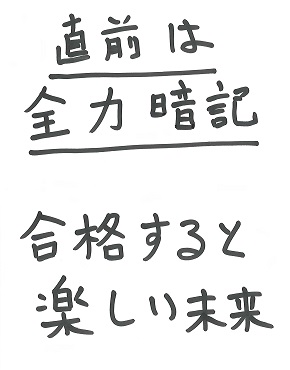 直前は
全力暗記
合格すると
楽しい未来